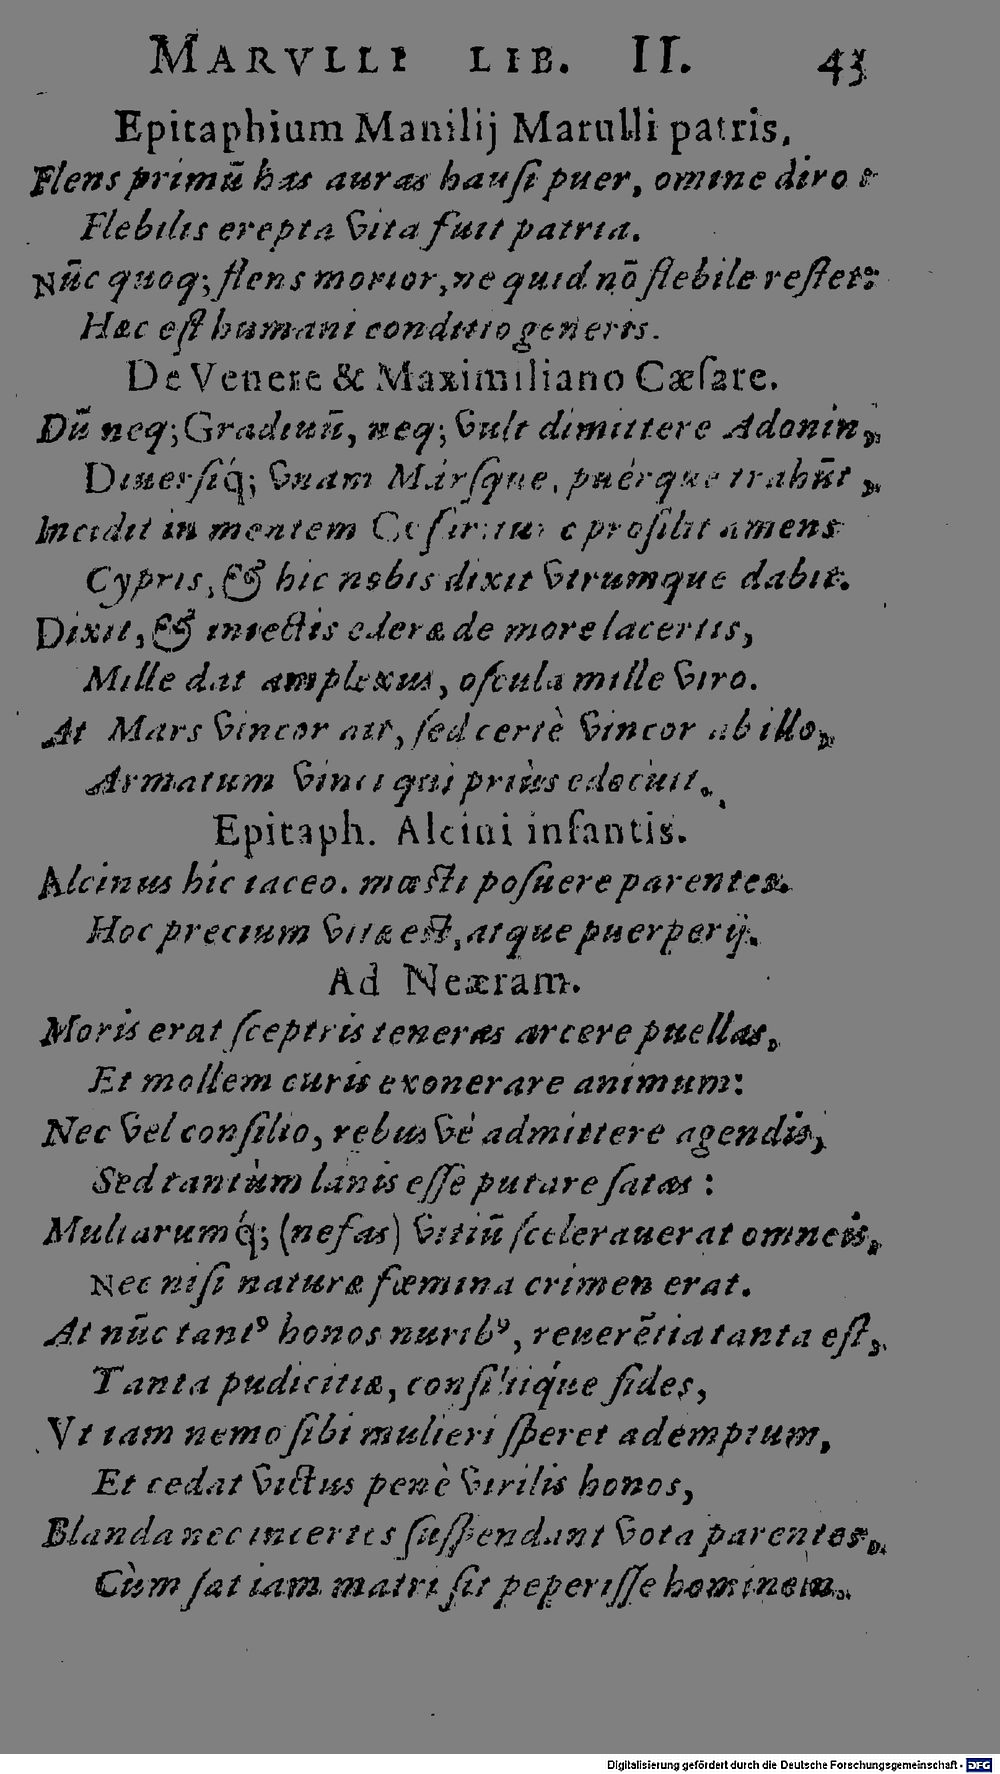 MARVLLI LIB. II. 43
Epitaphium Manilij Marulli patris.
Flens primũ has auras hauſi puer, omine diro :
Flebilis erepta vita fuit patria.
Nũc quoq; flens morior, ne quid nõ flebile reſtet:
Hæc eſt humani conditio generis.
De Venere & Maximiliano Cæſare.
Dũ neq; Gradiuũ, neq; vult dimittere Adonin,
Diuerſiq́; vnam Marſque, puérque trahũt,
Incidit in mentem proſilit amens
Cypris, & hic nobis dixit vtrumque dabit.
Dixit, & iniectis ederæ de more lacertis,
Mille dat amplexus, oſcula mille viro.
At Mars vincor ait, ſed certè vincor ab illo,
Armatum vinci qui priùs edocuit.
Epitaph. Alcini infantis.
Alcinus hic iaceo. mœſti poſuere parentes.
Hoc precium vitæ eſt, atque puerperij.
Ad Neæram.
Moris erat ſceptris teneras arcere puellas,
Et mollem curis exonerare animum:
Nec vel conſilio, rebus vè admittere agendis,
Sed tantùm lanis eſſe putare ſatas :
Multarumq́; (nefas) vitiũ ſcelerauerat omneis,
Nec niſi naturæ fœmina crimen erat.
At nũc tantꝰ honos nuribꝰ, reuerẽtia tanta eſt,
Tanta pudicitiæ, conſiliíque fides,
Vt iam nemo ſibi mulieri ſperet ademptum,
Et cedat victus penè virilis honos,
Blanda nec incertis ſuſpendunt vota parentes,
Cùm ſat iam matri ſit peperiſſe hominem.
Digitalisierung gefördert durch die Deutsche Forschungsgemeinschaft - DFG